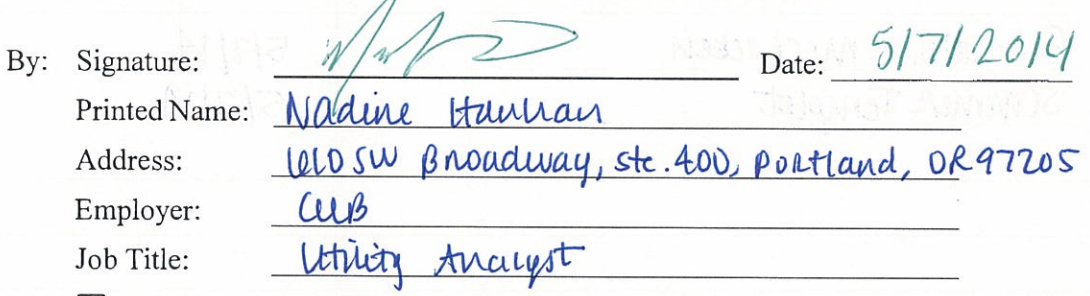 By: Signature: Date: 5/7/2014
Printed Name: Nadine Hanhan
Address: 610 SW Broadway, Ste. 400, Portland, OR 97205
Employer: CUB
Job Title: Utility Analyst